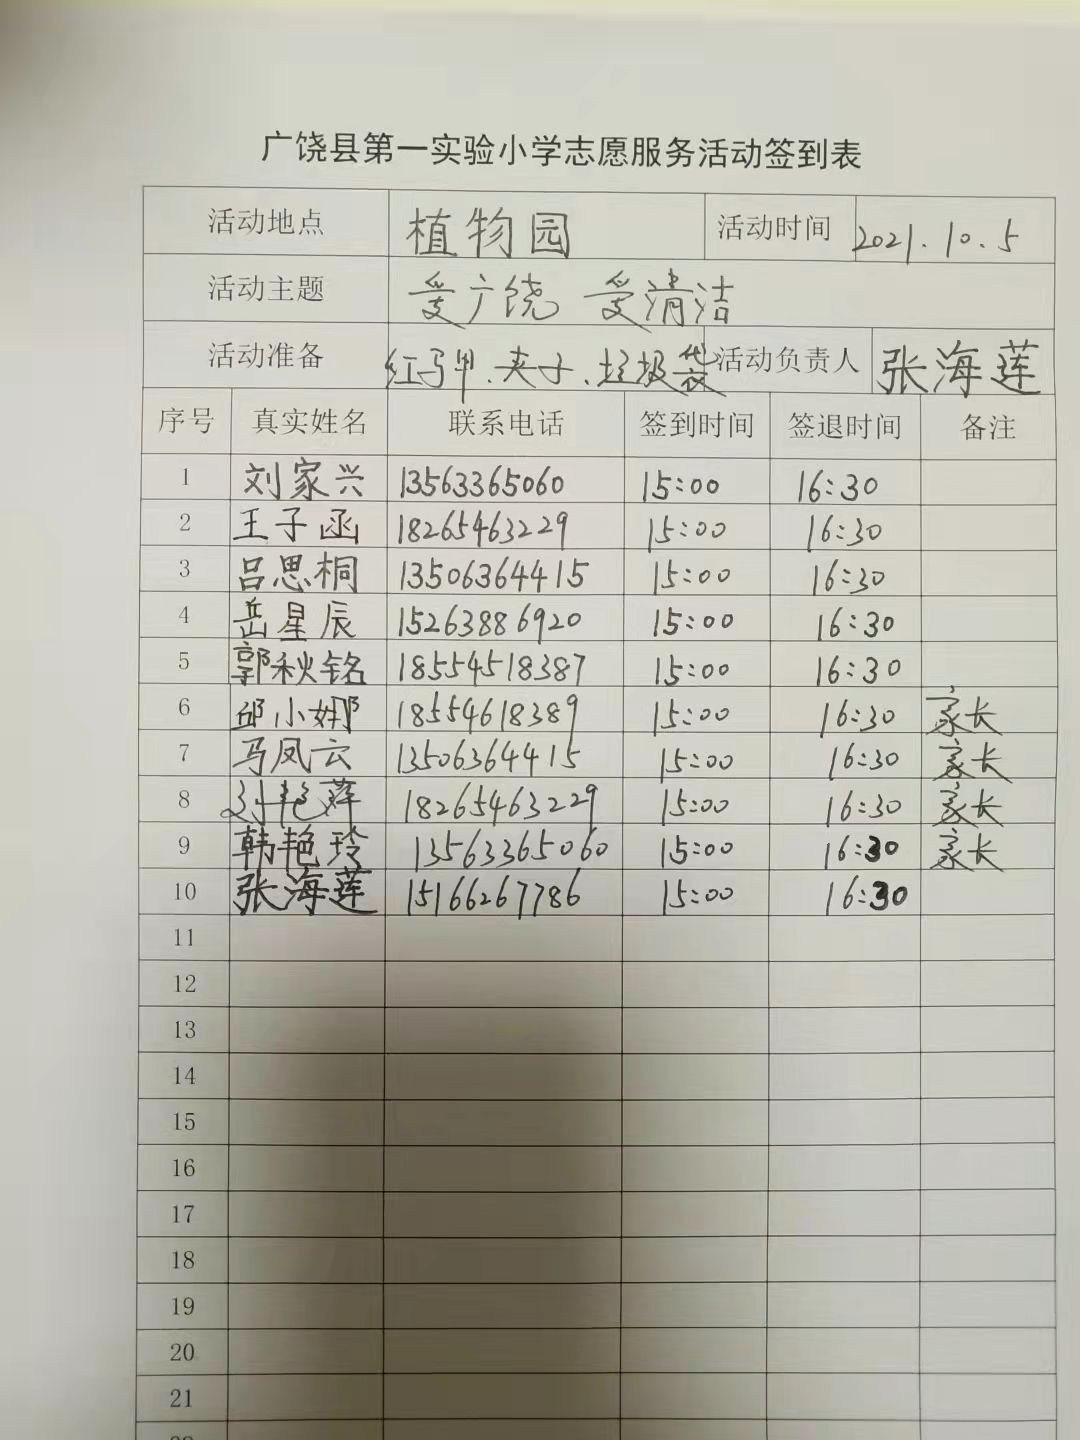 广饶县第一实验小学志愿服务活动签到表
活动地点 植物园 活动时间 2021.10.5
活动主题 爱广饶 爱清洁
活动准备 红马甲、夹子、垃圾袋 活动负责人 张海莲
序号 真实姓名 联系电话 签到时间 签退时间 备注
1 刘家兴 13563365060 15:00 16:30
2 王子函 18265463229 15:00 16:30
3 吕思桐 13506364415 15:00 16:30
4 岳星辰 15263886920 15:00 16:30
5 郭秋铭 18554518387 15:00 16:30
6 邱小娜 18554618389 15:00 16:30 家长
7 马凤云 13506364415 15:00 16:30 家长
8 刘艳萍 18265463229 15:00 16:30 家长
9 韩艳玲 13563365060 15:00 16:30 家长
10 张海莲 15166267786 15:00 16:30
11
12
13
14
15
16
17
18
19
20
21